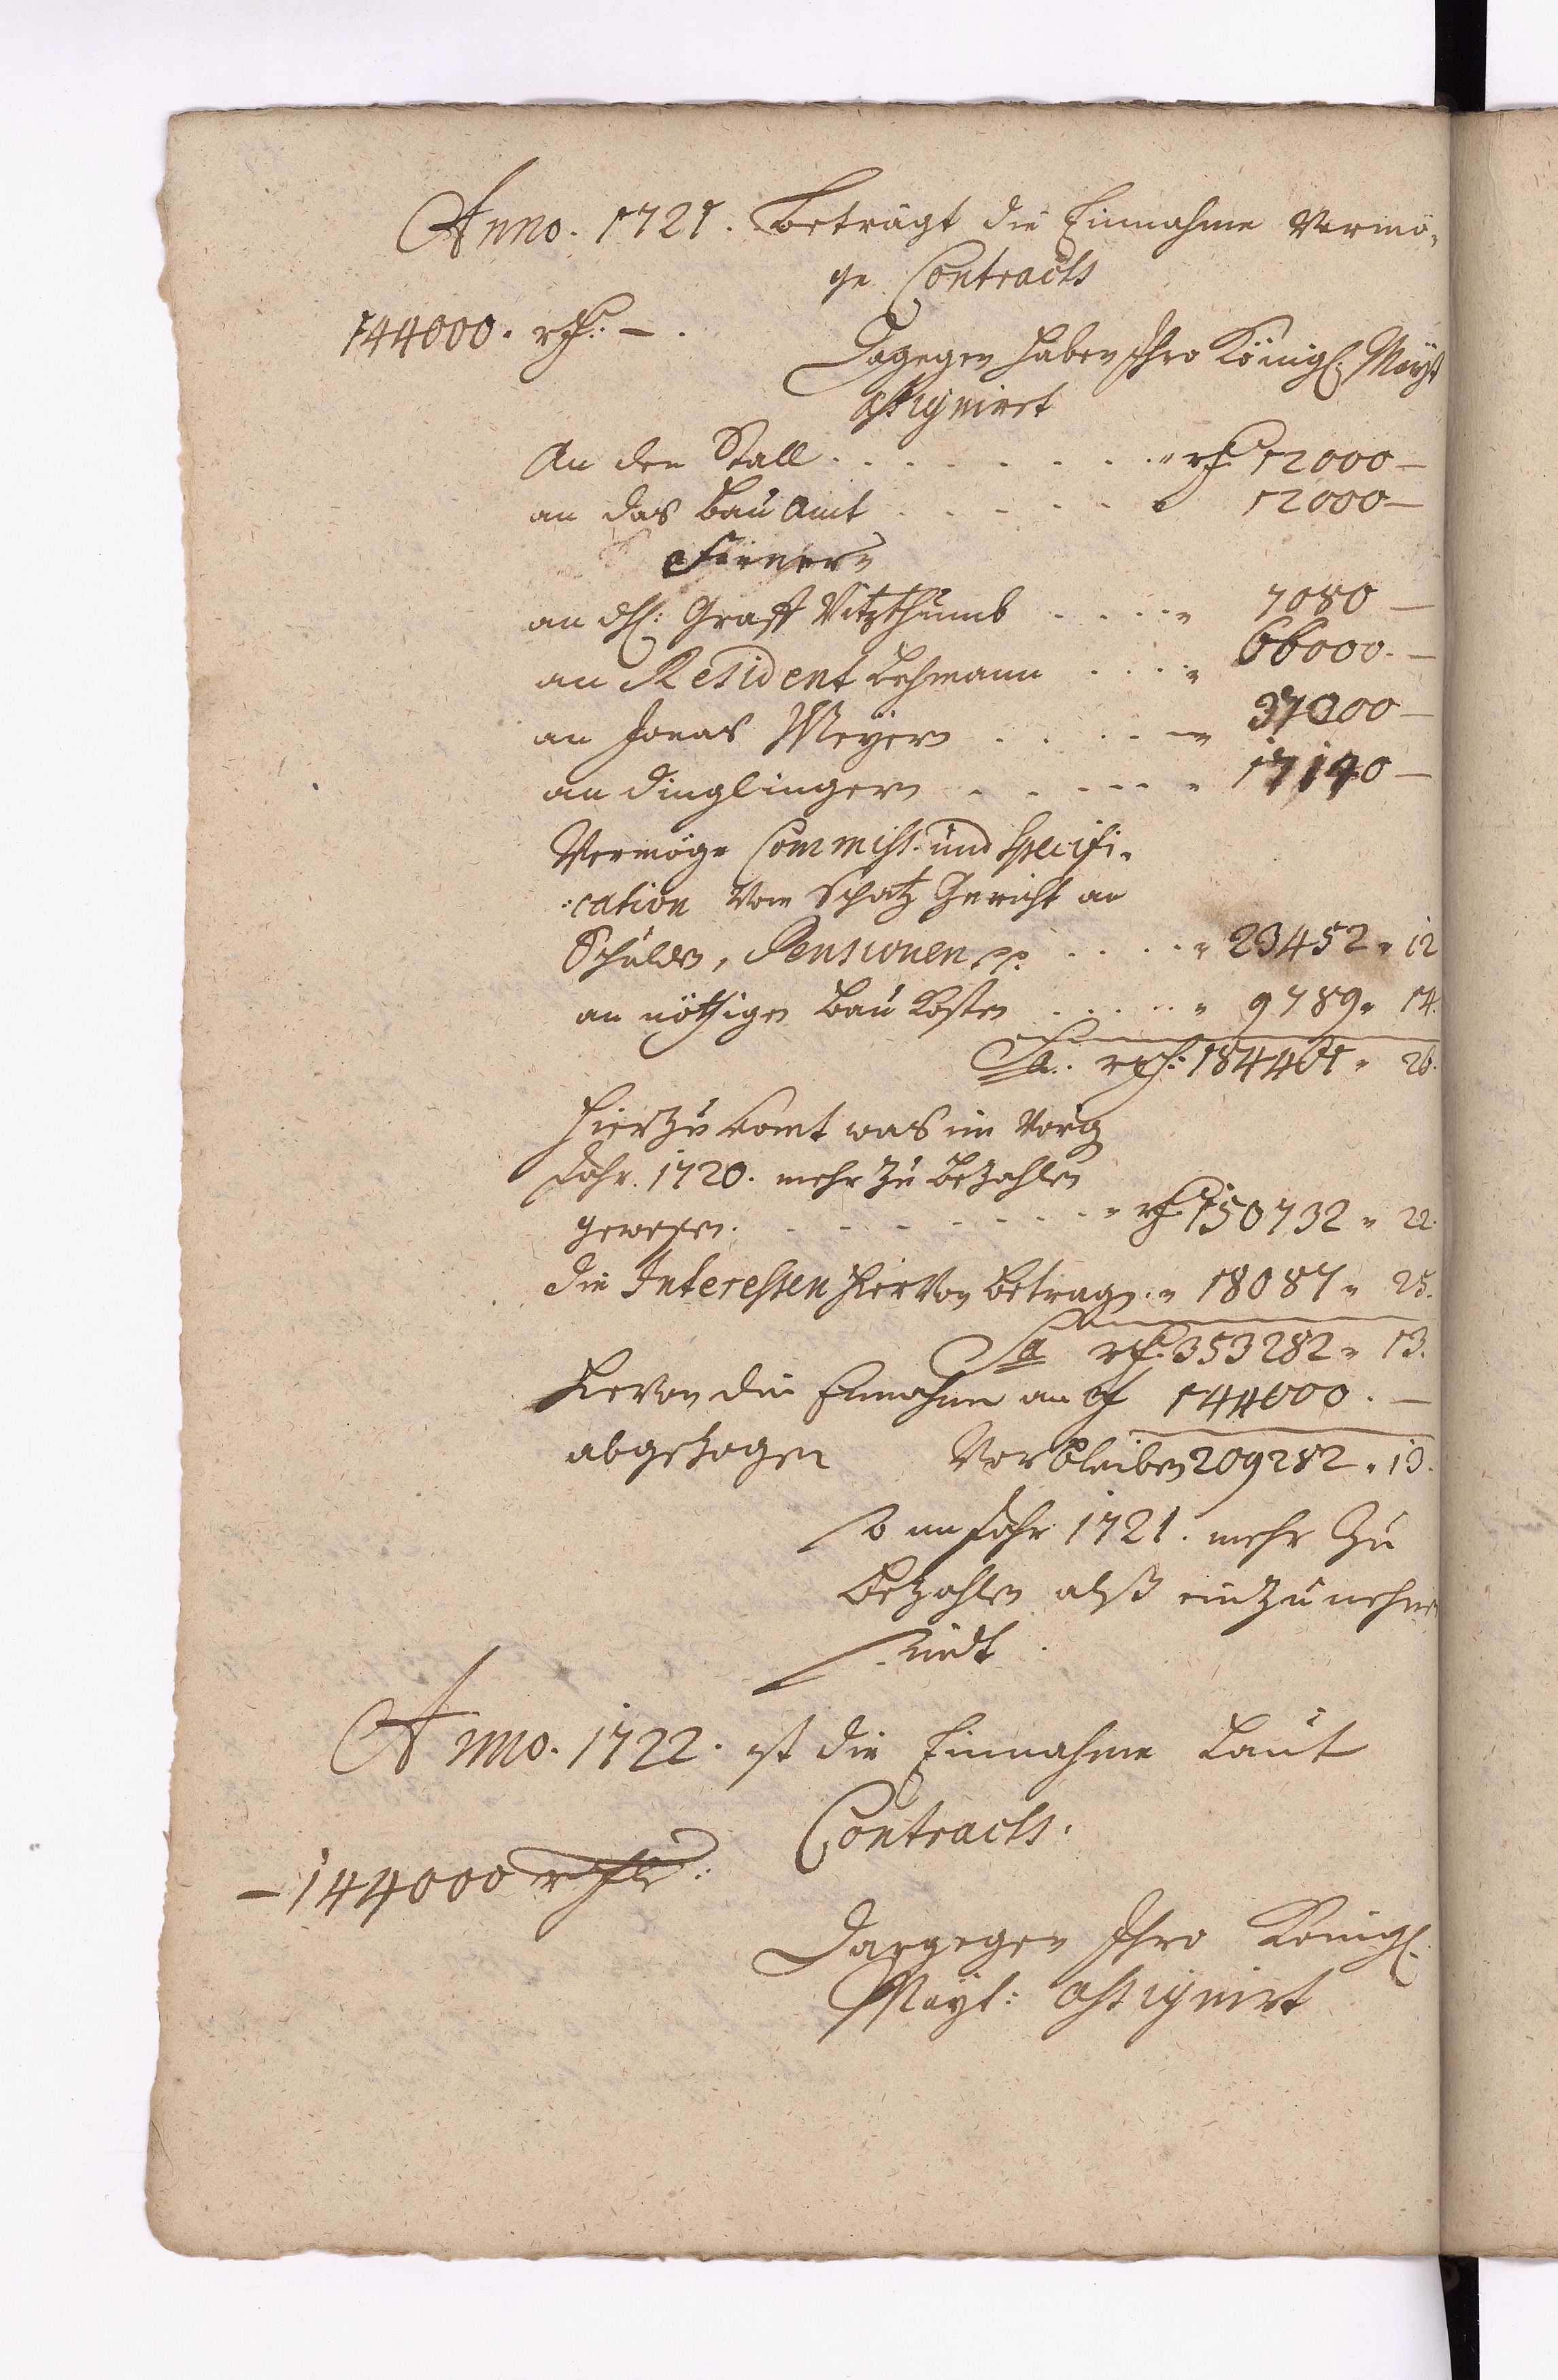 Anno. 1721. Beträgt die Einnahme Vermö-
ge Contracts
144000. rth: —.
Dagegen haben Ihro Königl. Mayt
assigniret
An den Stall . . . . . . . . " rth 12000 —
an das Bau Amt . . . . . " 12000 —
Ferner
an H: Graff Vitzthumb . . . . " 7080 —
an Resident Lehmann . . . . " 66000. —
an Jonas Meyern . . . . — " 37000 —
an Dinglingern . . . . . " 17140 —
Vermöge Commiss. und Specifi-
:cation Vom Schatz Gericht an
Schulden, Pensionen pp. . . . . " 23452 " 12
an nöthigen Bau Kosten . . . . . " 9789 " 14.
Sa. rth: 184461 " 26.
Hierzu komt was im Vorig
Jahr. 1720. mehr zu bezahlen
gewesen. . . . . . . . . " rth 150732 " 22.
die Interessen hiervon betragen " 18087 " 25.
Sa rth: 353282 " 13.
Hiervon die Einahme an rth 144000. —
abgezogen Verbleiben 209282 " 13.
so im Jahr 1721. mehr zu
bezahlen alß einzunehmen
sindt.
Anno. 1722. ist die Einnahme Laut
Contracts.
— 144000 rthlr:
Dargegen Ihro Königl.
Mayt: assignirt